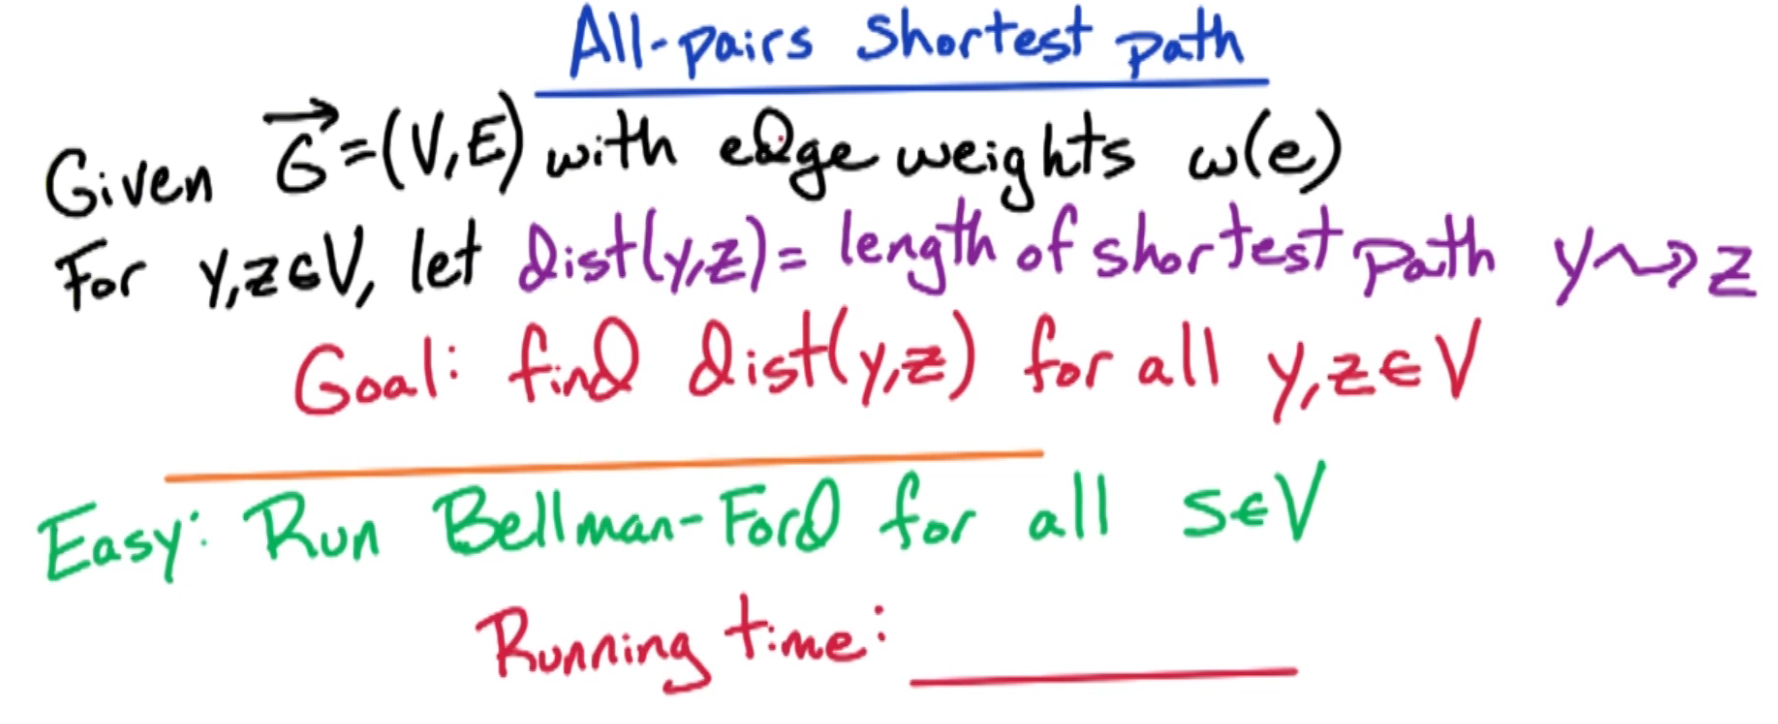 All-pairs shortest path
Given G⃗=(V,E) with edge weights w(e)
For y,z∈V, let dist(y,z)= length of shortest path y⇝z
Goal: find dist(y,z) for all y,z∈V
Easy: Run Bellman-Ford for all s∈V
Running time: ________